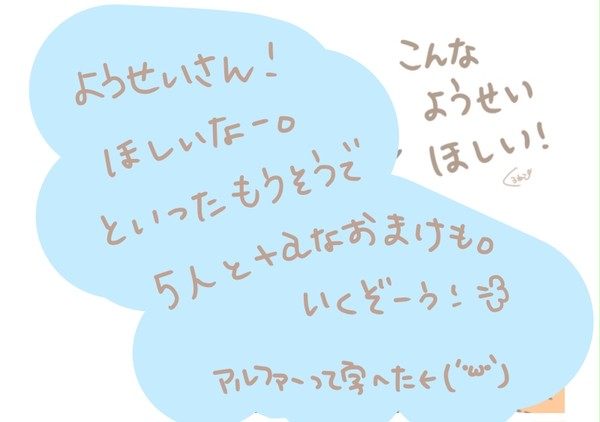 ようせいさん!
ほしいなー。
といったもうそうで
5人と+aなおまけも。
いくぞーう!
アルファーって字へた←(´・ω・`)
こんな
ようせい
ほしい!